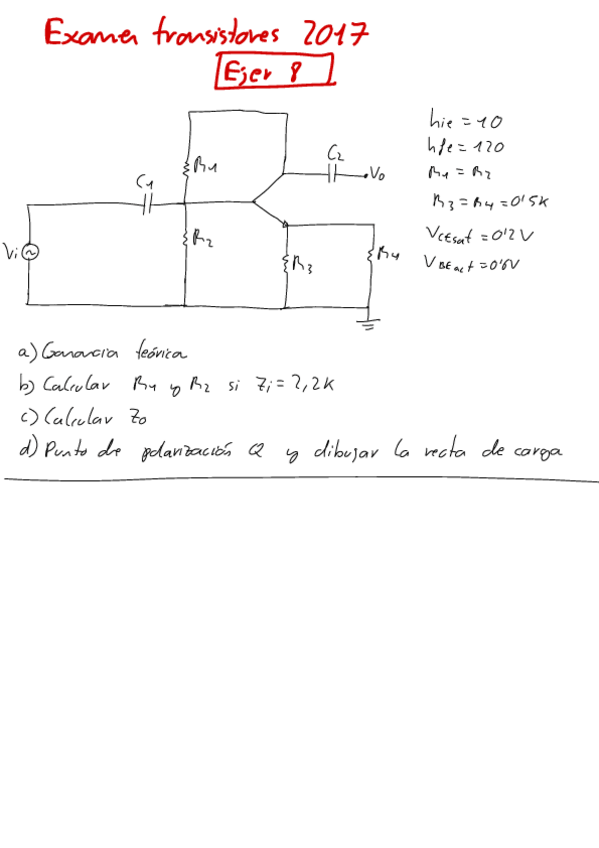 Examen transistores 2017
Ejer 8
hie = 10
hfe = 120
R1 = R2
R3 = R4 = 0'5K
VCEsat = 0'2V
VBEact = 0'6V
C1
R1
C2
Vo
R2
Vi
R3
R4
a) Ganancia teórica
b) Calcular R1 y R2 si Zi = 2,2K
c) Calcular Zo
d) Punto de polarización Q y dibujar la recta de carga